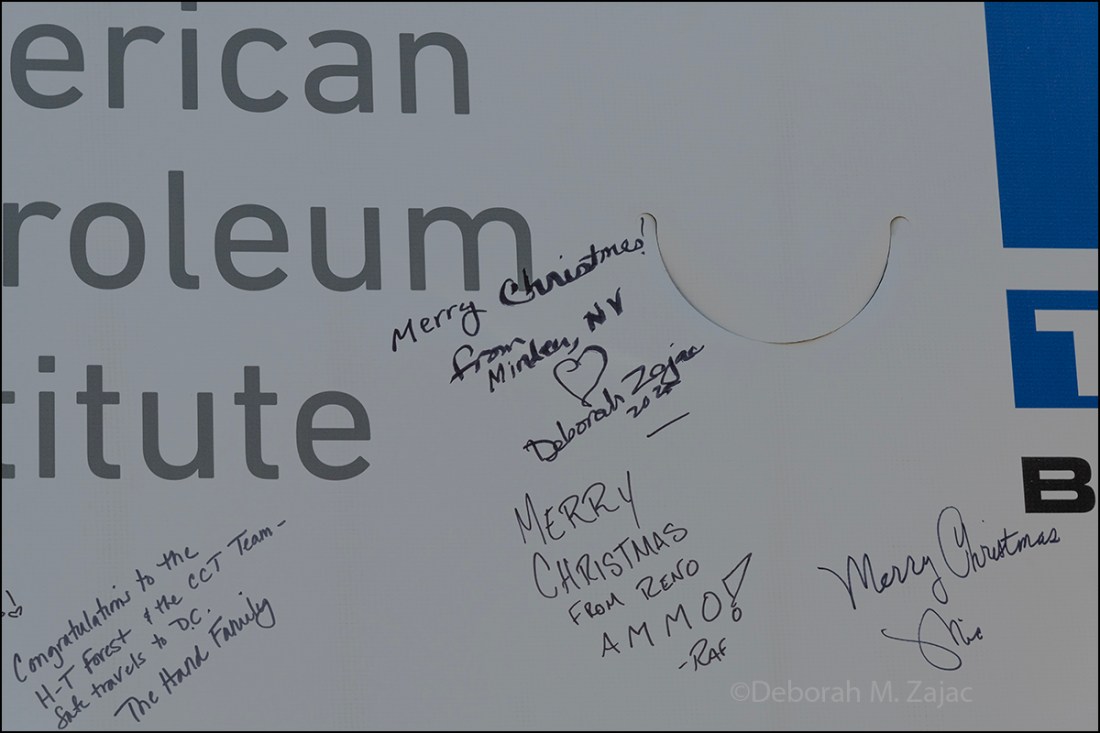 erican
roleum
titute
Merry Christmas!
from
Minden, NV
Deborah Zajac
2020
MERRY
CHRISTMAS
FROM RENO
AMMO!
-RAF
Merry Christmas
Congratulations to the
H-T Forest & the CCT Team -
Safe travels to D.C.
The Hand Family
T
B
©Deborah M. Zajac